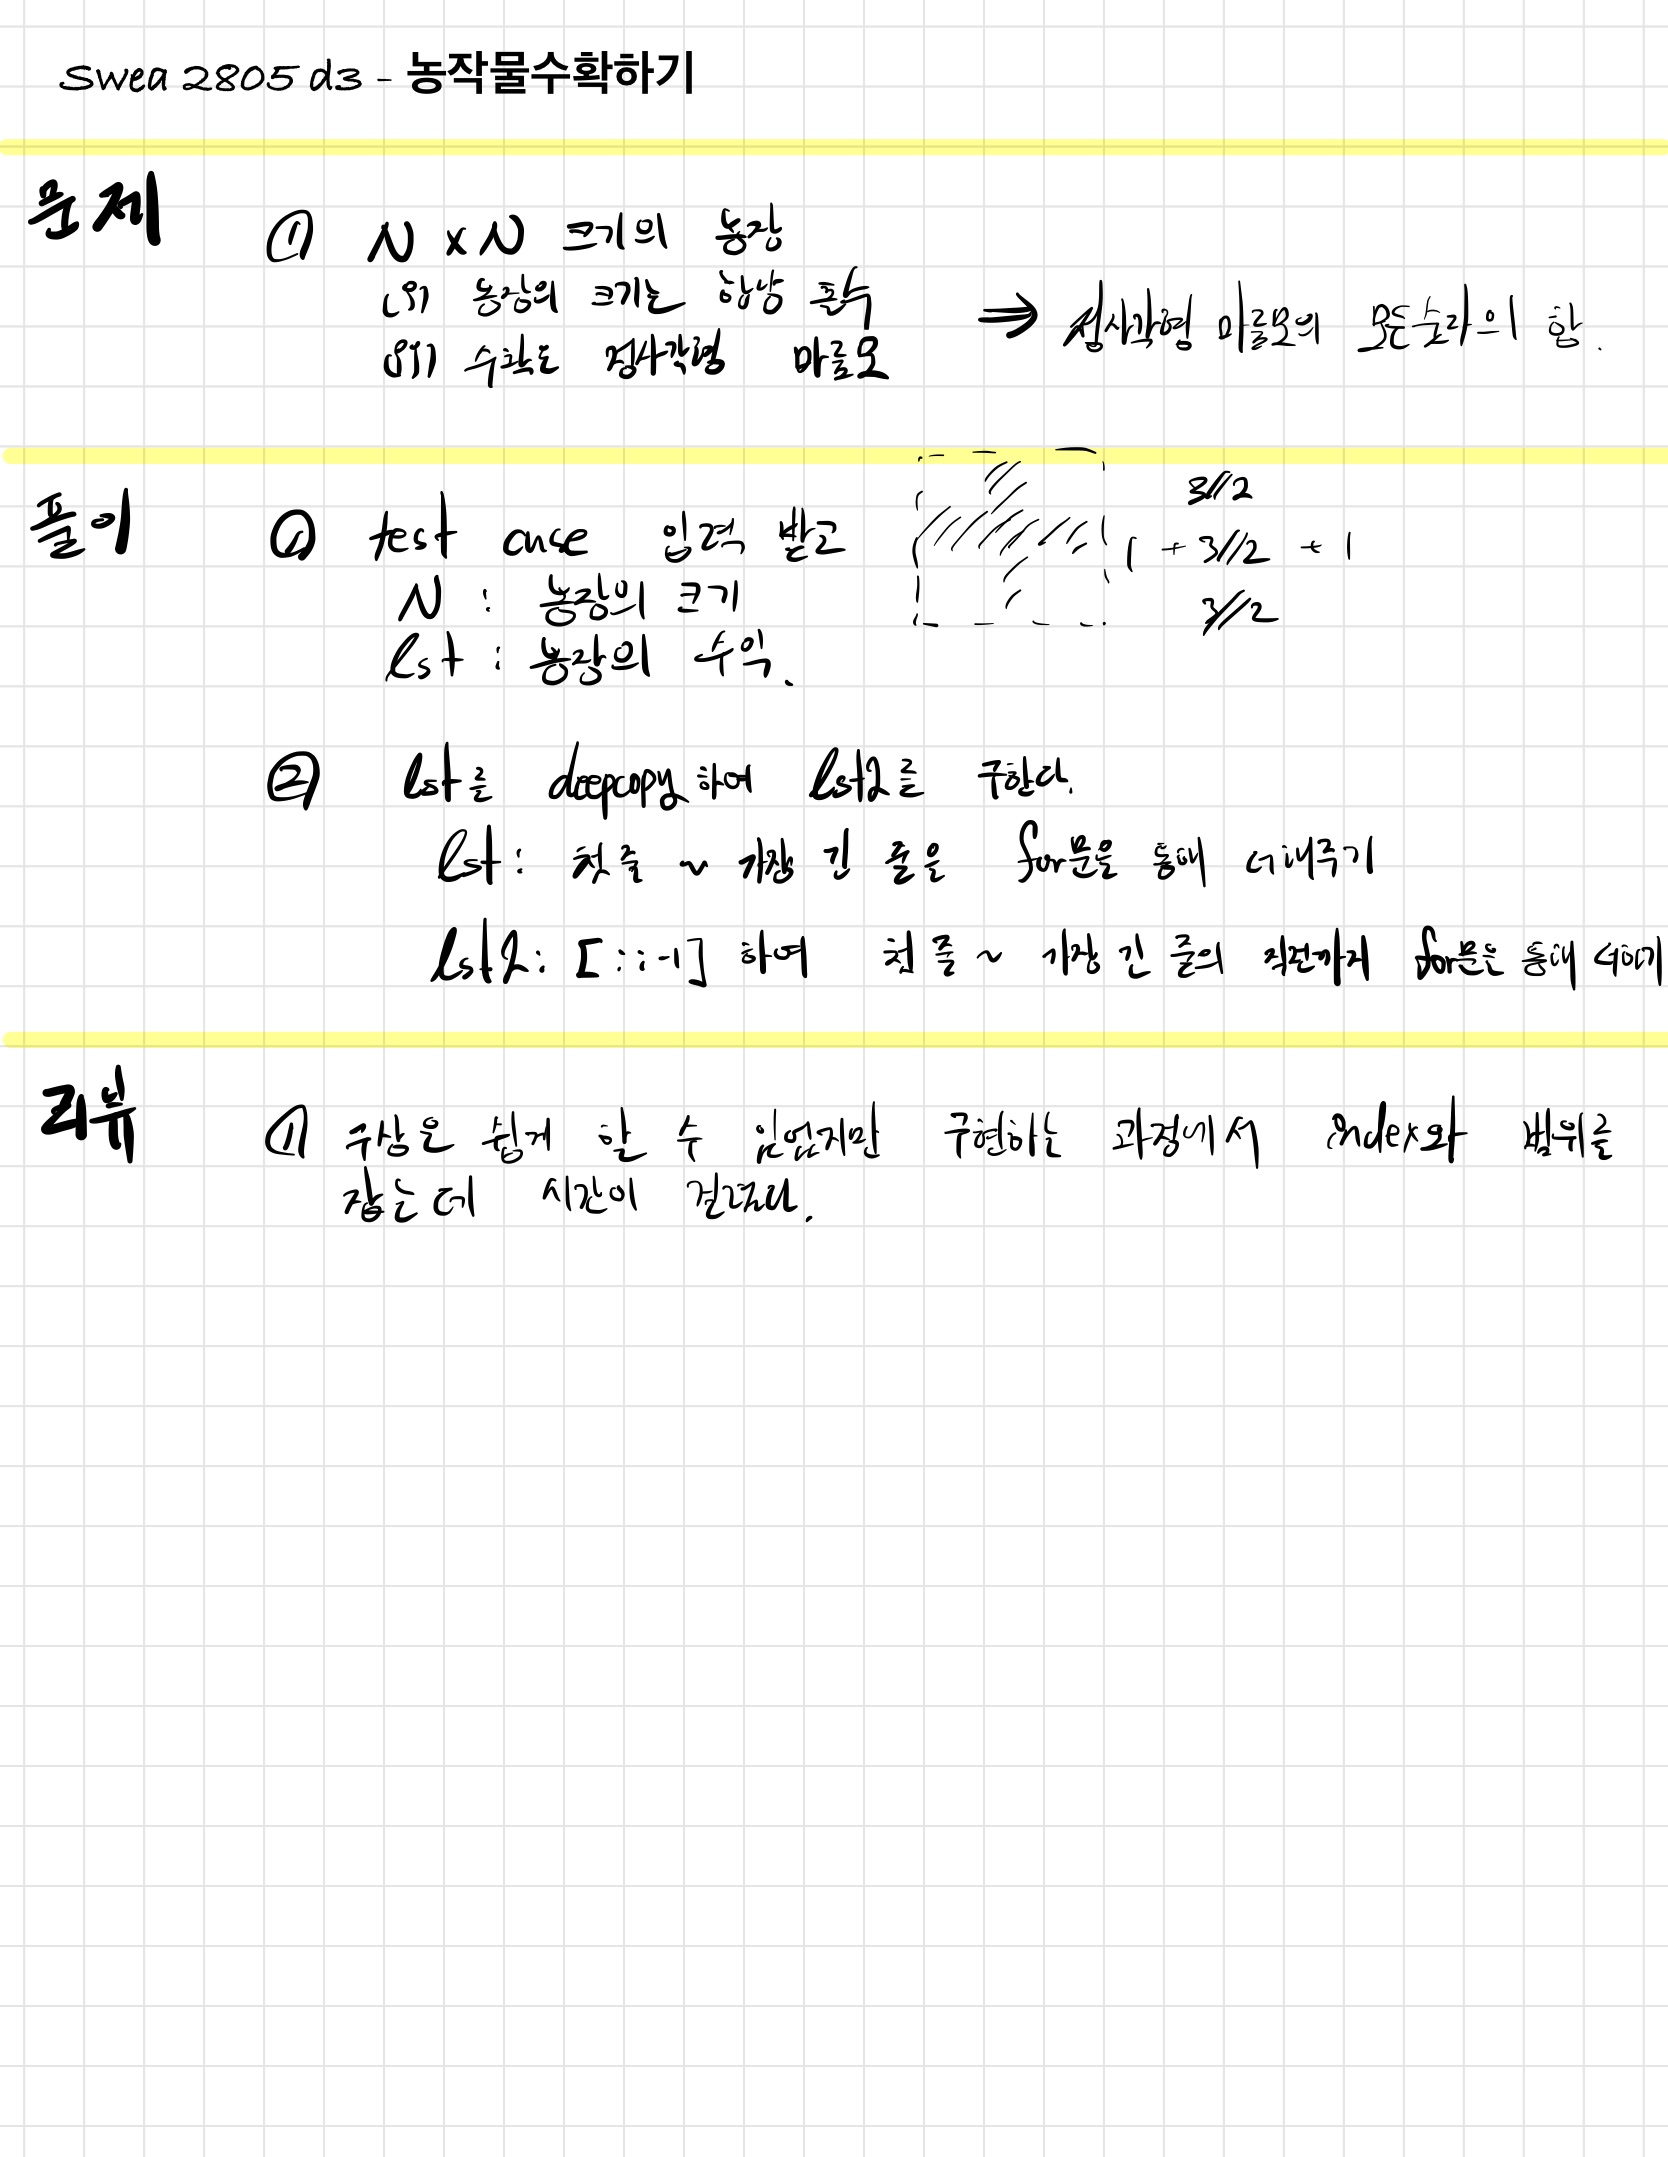 Swea 2805 d3 - 농작물수확하기
문제
① N x N 크기의 농장
(i) 농장의 크기는 항상 홀수
(ii) 수확은 정사각형 마름모
⇒ 정사각형 마름모의 모든 숫자의 합.
풀이
① test case 입력 받고
N : 농장의 크기
lst : 농장의 수익.
3//2
1 + 3//2 + 1
3//2
② lst를 deepcopy하여 lst2를 구한다.
lst : 첫 줄 ~ 가장 긴 줄을 for문을 통해 더해주기
lst2 : [::-1] 하여 첫 줄 ~ 가장 긴 줄의 직전까지 for문은 통해 더하기
리뷰
① 구상은 쉽게 할 수 있었지만 구현하는 과정에서 index와 범위를
잡는데 시간이 걸렸다.